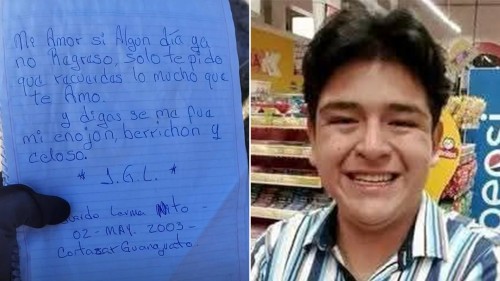 Me Amor si Algún día ya
no Ragraso, solo te pido
que racuardas lo mucho que
te Amo.
y digas se ma fua
mi enojon, berrichon y
celoso.
* J.G.L. *
Lerma
02 - MAY. 2003 -
Cortazar Guanajuato -
pepsi